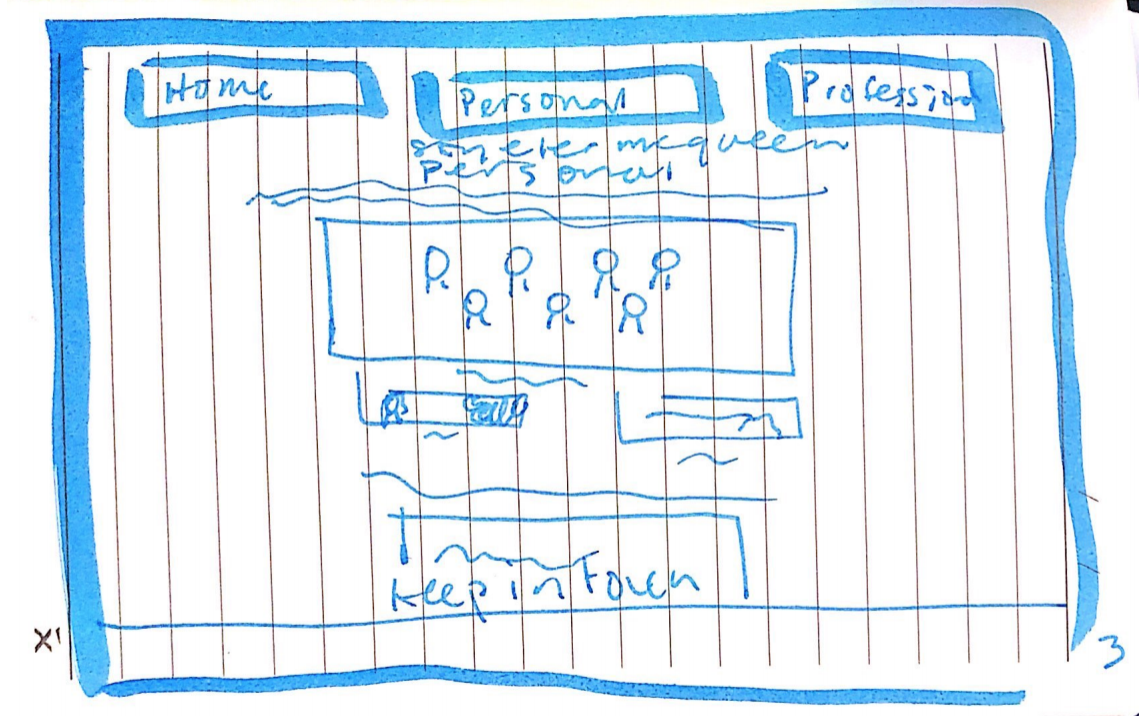 Home
Personal
Profession
mcqueen
Personal
Keep in Touch
X'
3